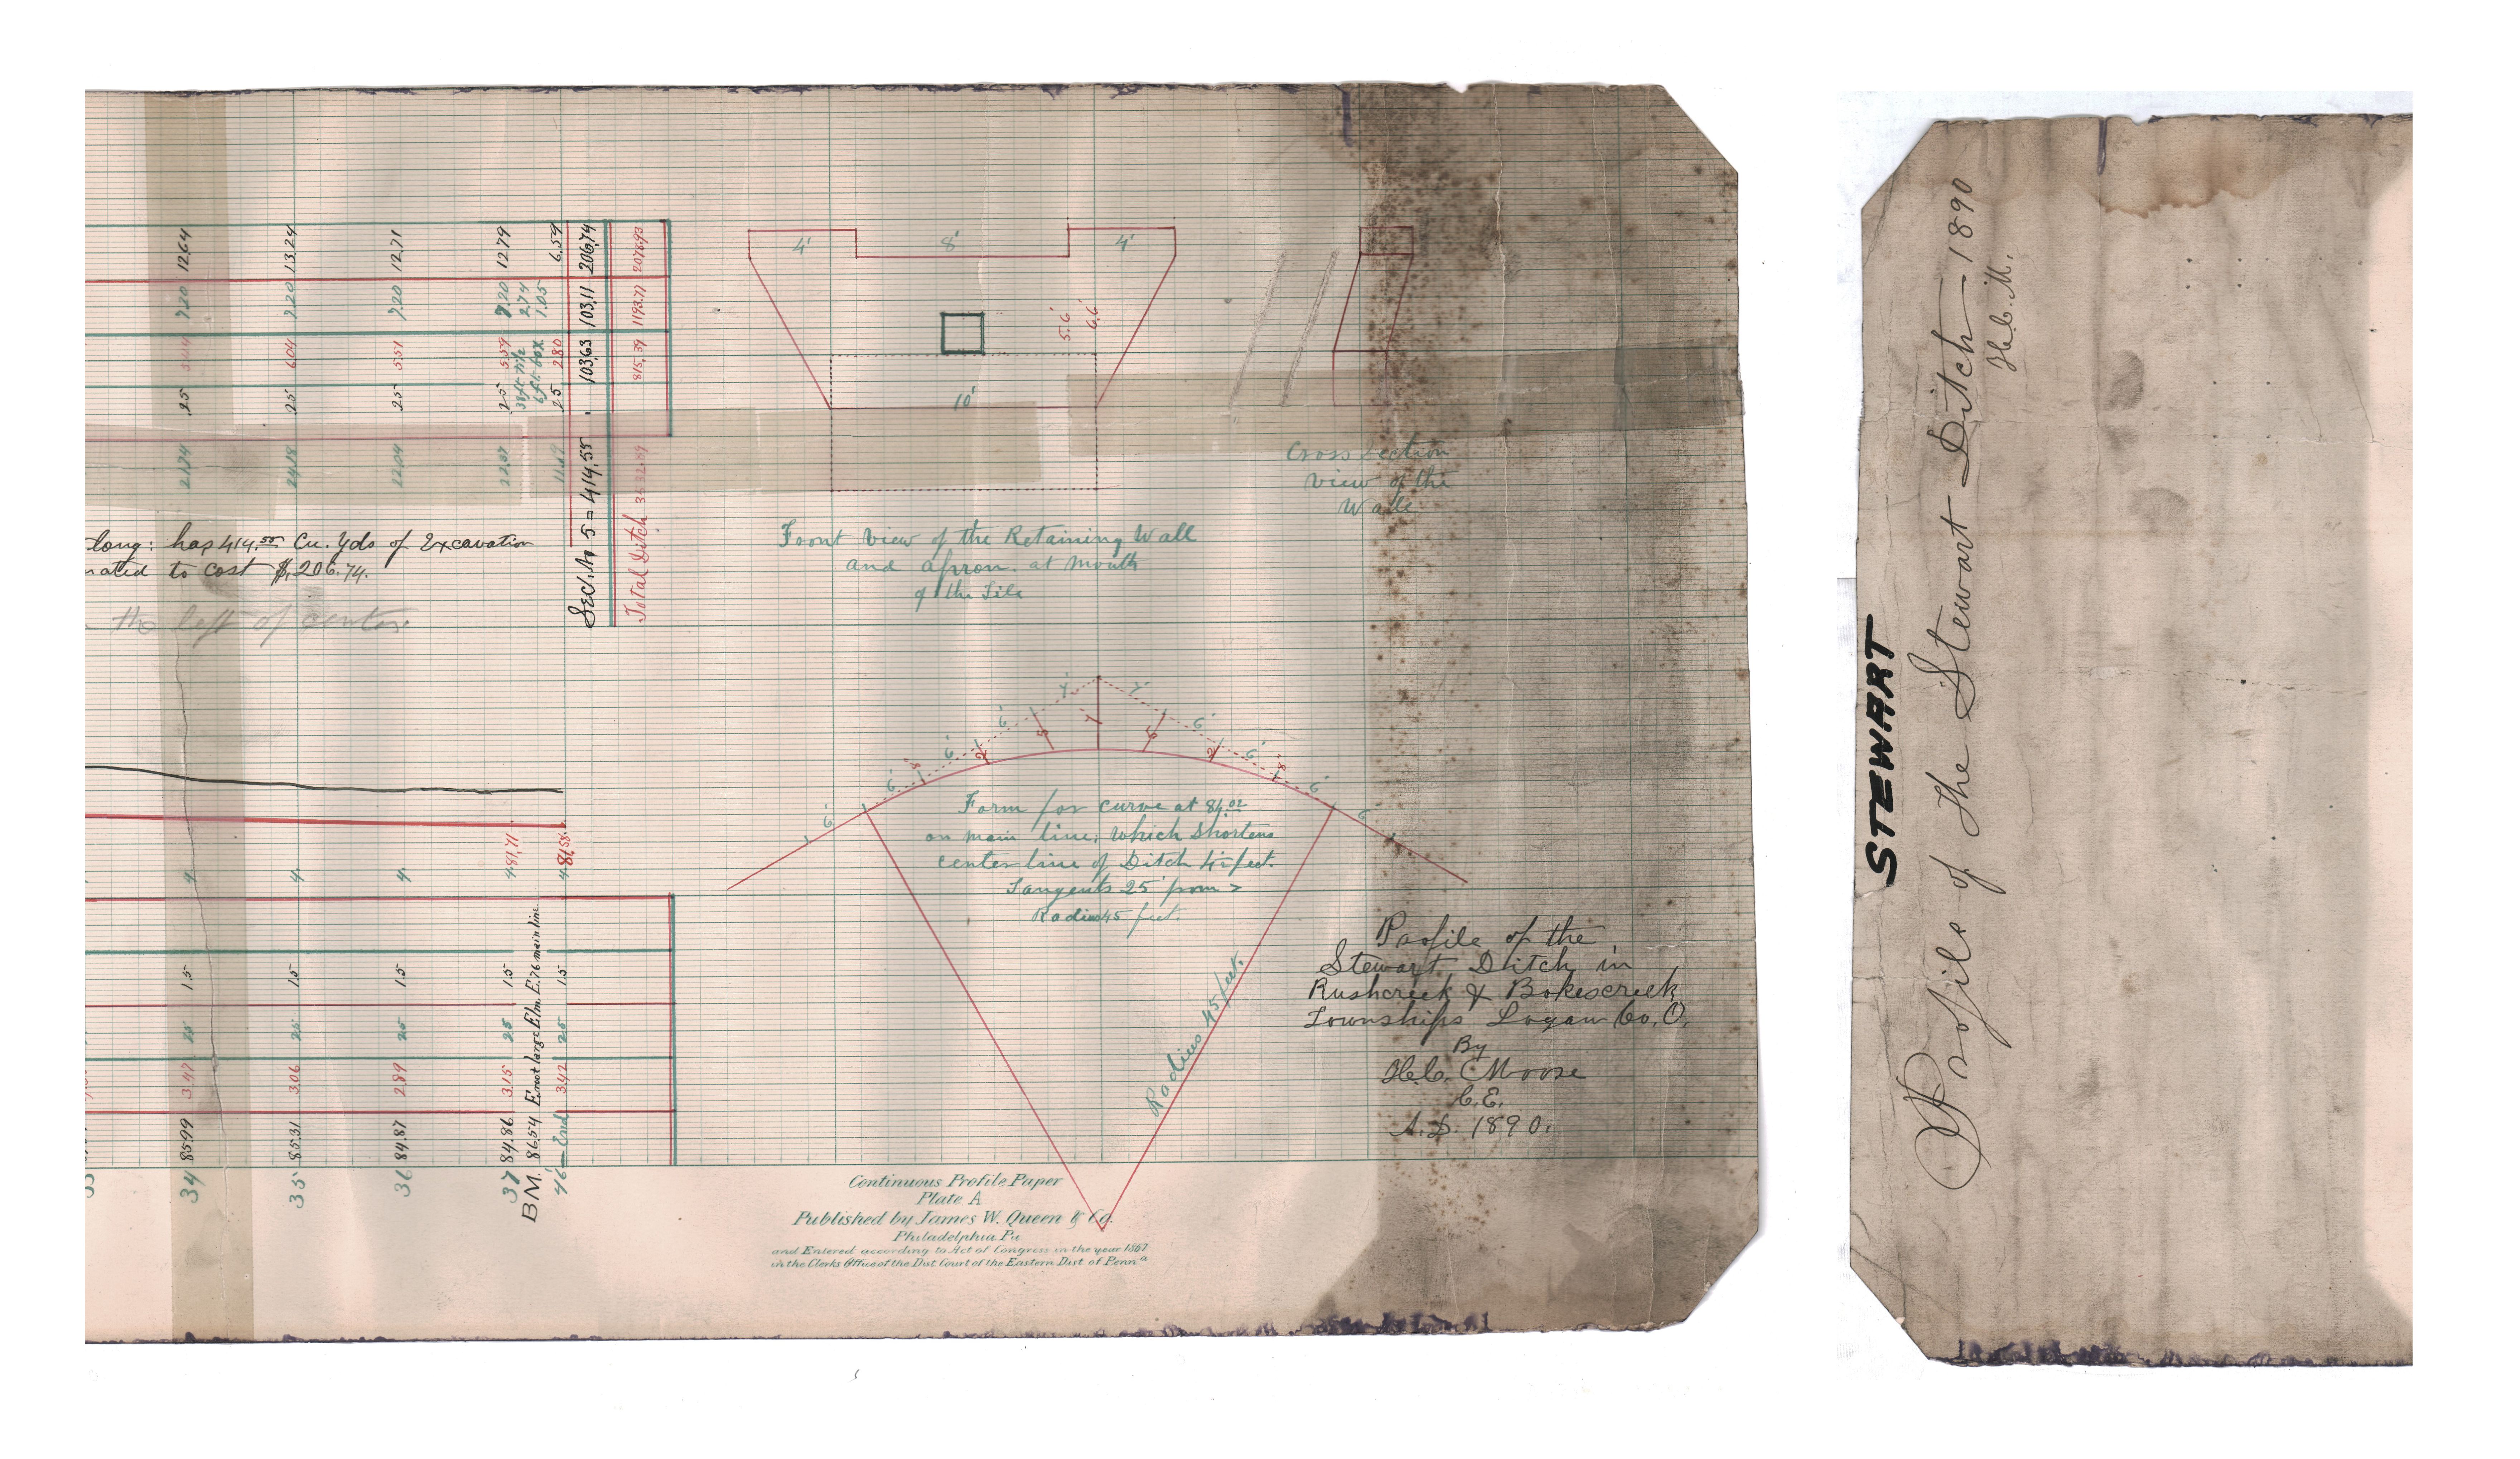 12.64
7.20
25
21.74
13.24
7.20
6.04
25
24.18
12.71
7.20
5.51
25
22.04
12.79
7.20
2.74
5.59
25
6.59
1.05
2.80
25
Sec. No 5 = 414.55 103.63 103.11 206.74
Total Ditch 815.39 1193.71
long: has 414.55 Cu. Yds of Excavation
to cost $,206.74.
the left of center
4'
8'
4'
5.6'
6.6'
10'
Front View of the Retaining Wall
and apron. at mouth
of the Tile
Cross Section
View of the
Wall
6' 6' 6' 6'
6' 6' 6' 6'
Form for curve at 84.02
on main line; which shortens
center line of Ditch feet.
Tangents 25' from >
Radius 45 feet.
Radius 45 feet.
4
4.
4.
481.71
481.58
34 85.99 3.47 25 1.5
35 85.31 3.06 25 1.5
36 84.87 2.89 25 1.5
37 84.86 3.15 25 1.5
B.M. 86.54 E. root large Elm. E. 76 main line.
46 End 3.42 25 1.5
Profile of the
Stewart Ditch in
Rushcreek & Bokescreek
Townships Logan Co, O,
By
H.C. Moore
C.E.
A.D. 1890.
Continuous Profile Paper
Plate A
Published by James W. Queen & Co.
Philadelphia Pa
and Entered according to Act of Congress in the year 1867
in the Clerks Office of the Dist. Court of the Eastern Dist. of Penna
STEWART
Profile of the Stewart Ditch - 1890
H.C.M.